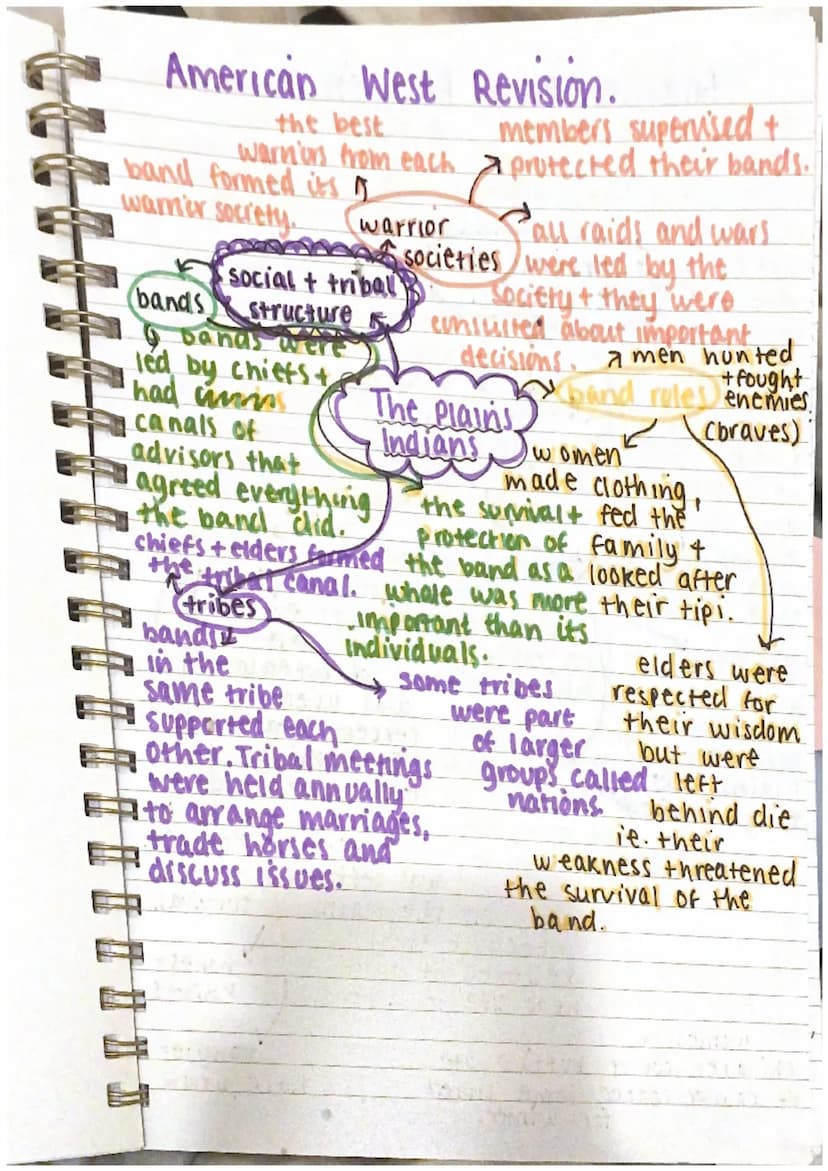 American West Revision.
the best
warriors from each
band formed its
warrior society.
members supervised +
protected their bands.
warrior
societies
all raids and wars
were led by the
society + they were
consulted about important
decisions.
social + tribal
structure
bands
bands were
led by chiefs +
had
canals of
advisors that
agreed everything
the band did.
The Plains
Indians
band roles
men hunted
+ fought
enemies
(braves)
women
made clothing,
fed the
family +
looked after
their tipi.
the survival +
protection of
the band as a
whole was more
important than its
individuals.
chiefs + elders formed
the tribal canal.
tribes
bands
in the
same tribe
supported each
other. Tribal meetings
were held annually
to arrange marriages,
trade horses and
discuss issues.
some tribes
were part
of larger
groups called
nations.
elders were
respected for
their wisdom
but were
left
behind die
ie. their
weakness threatened
the survival of the
band.